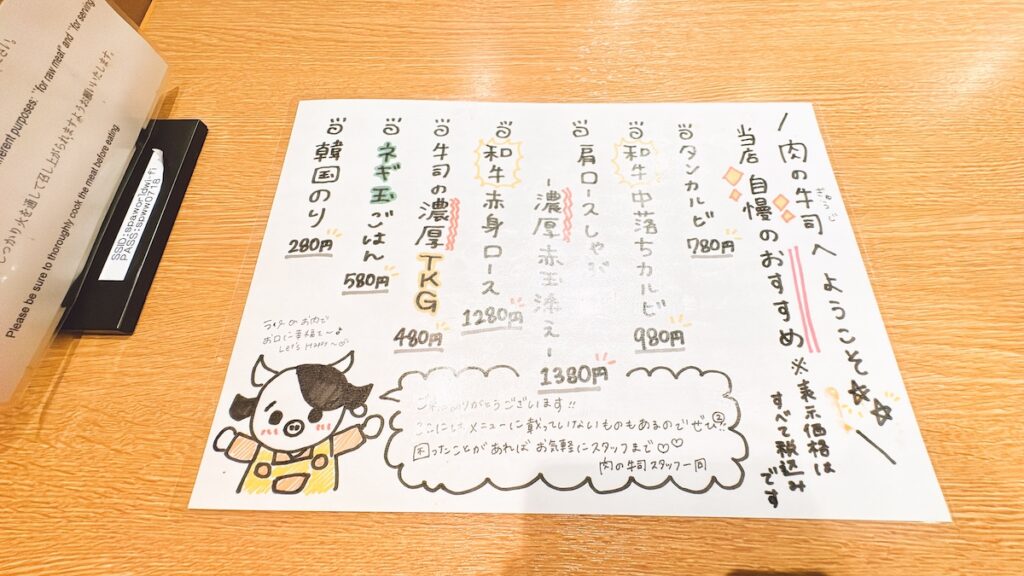 肉の牛司へ ようこそ☆☆
ぎゅうじ
当店 自慢のおすすめ
※表示価格は
すべて税込み
です
タンカルビ
780円
和牛中落ちカルビ
980円
肩ロースしゃぶ
-濃厚赤玉添え-
1380円
和牛赤身ロース
1280円
牛司の濃厚TKG
480円
ネギ玉ごはん
580円
韓国のり
280円
お口に幸福を〜♪
Let's Happy〜♡
ご来店ありがとうございます!!
ここには、メニューに載っていないものもあるのでぜひ!!
困ったことがあれば お気軽にスタッフまで♡♡
肉の牛司スタッフ一同
fferent purposes: "for raw meat" and "for serving
しっかり火を通して召し上がられますようお願いいたします。
Please be sure to thoroughly cook the meat before eating.
SSID:spaworldwi-fi
PASS:spww0718